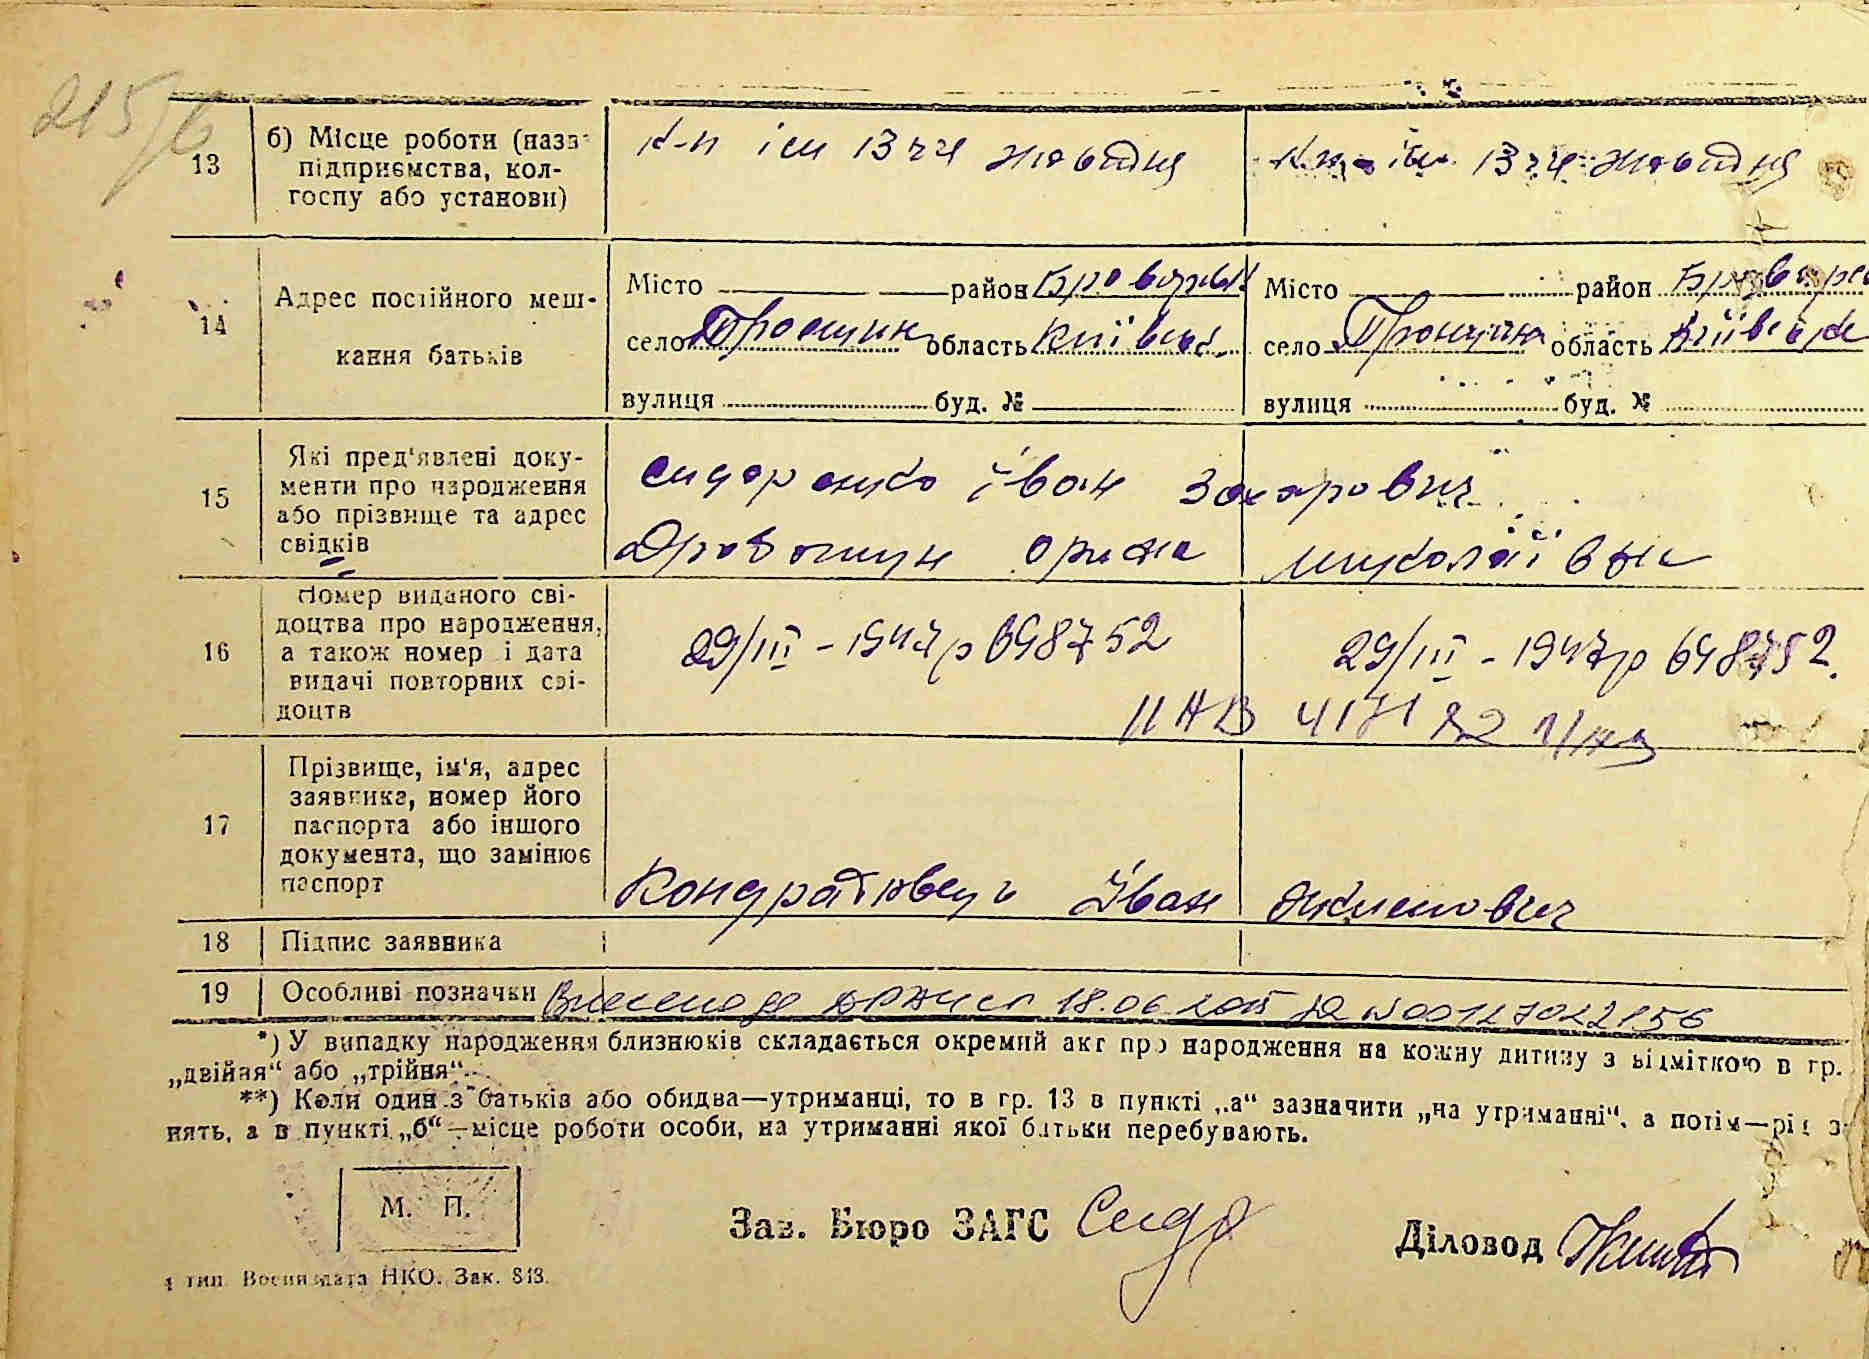 215/6
13 б) Місце роботи (назва
підприємства, кол-
госпу або установи)
К-п ім 13 рччя жовтня К-п ім. 13 рччя жовтня
14 Адрес постійного меш-
кання батьків
Місто район Броварськ Місто район Броварсь
село Требухин область Київськ. село область Київськ
вулиця буд. № вулиця буд. №
15 Які пред'явлені доку-
менти про народження
або прізвище та адрес
свідків
Сидоренко Іван Захарович
Орина Миколаївна
16 Номер виданого сві-
доцтва про народження,
а також номер і дата
видачі повторних сві-
доцтв
29/III - 1947р 698752 29/III - 1947р 698752.
17 Прізвище, ім'я, адрес
заявника, номер його
паспорта або іншого
документа, що замінює
паспорт
Кондратовець Іван Якимович
18 Підпис заявника
19 Особливі позначки Внесено до ДРАЦСГ 18.06 2015 № 00127022156
*) У випадку народження близнюків складається окремий акт про народження на кожну дитину з відміткою в гр.
„двійня“ або „трійня“.
**) Коли один з батьків або обидва—утриманці, то в гр. 13 в пункті „а“ зазначити „на утриманні“, а потім—рід з-
нять, а в пункті „б“—місце роботи особи, на утриманні якої батьки перебувають.
М. П.
Зав. Бюро ЗАГС Сидо
Діловод
4 тип. Воениздата НКО. Зак. 813.